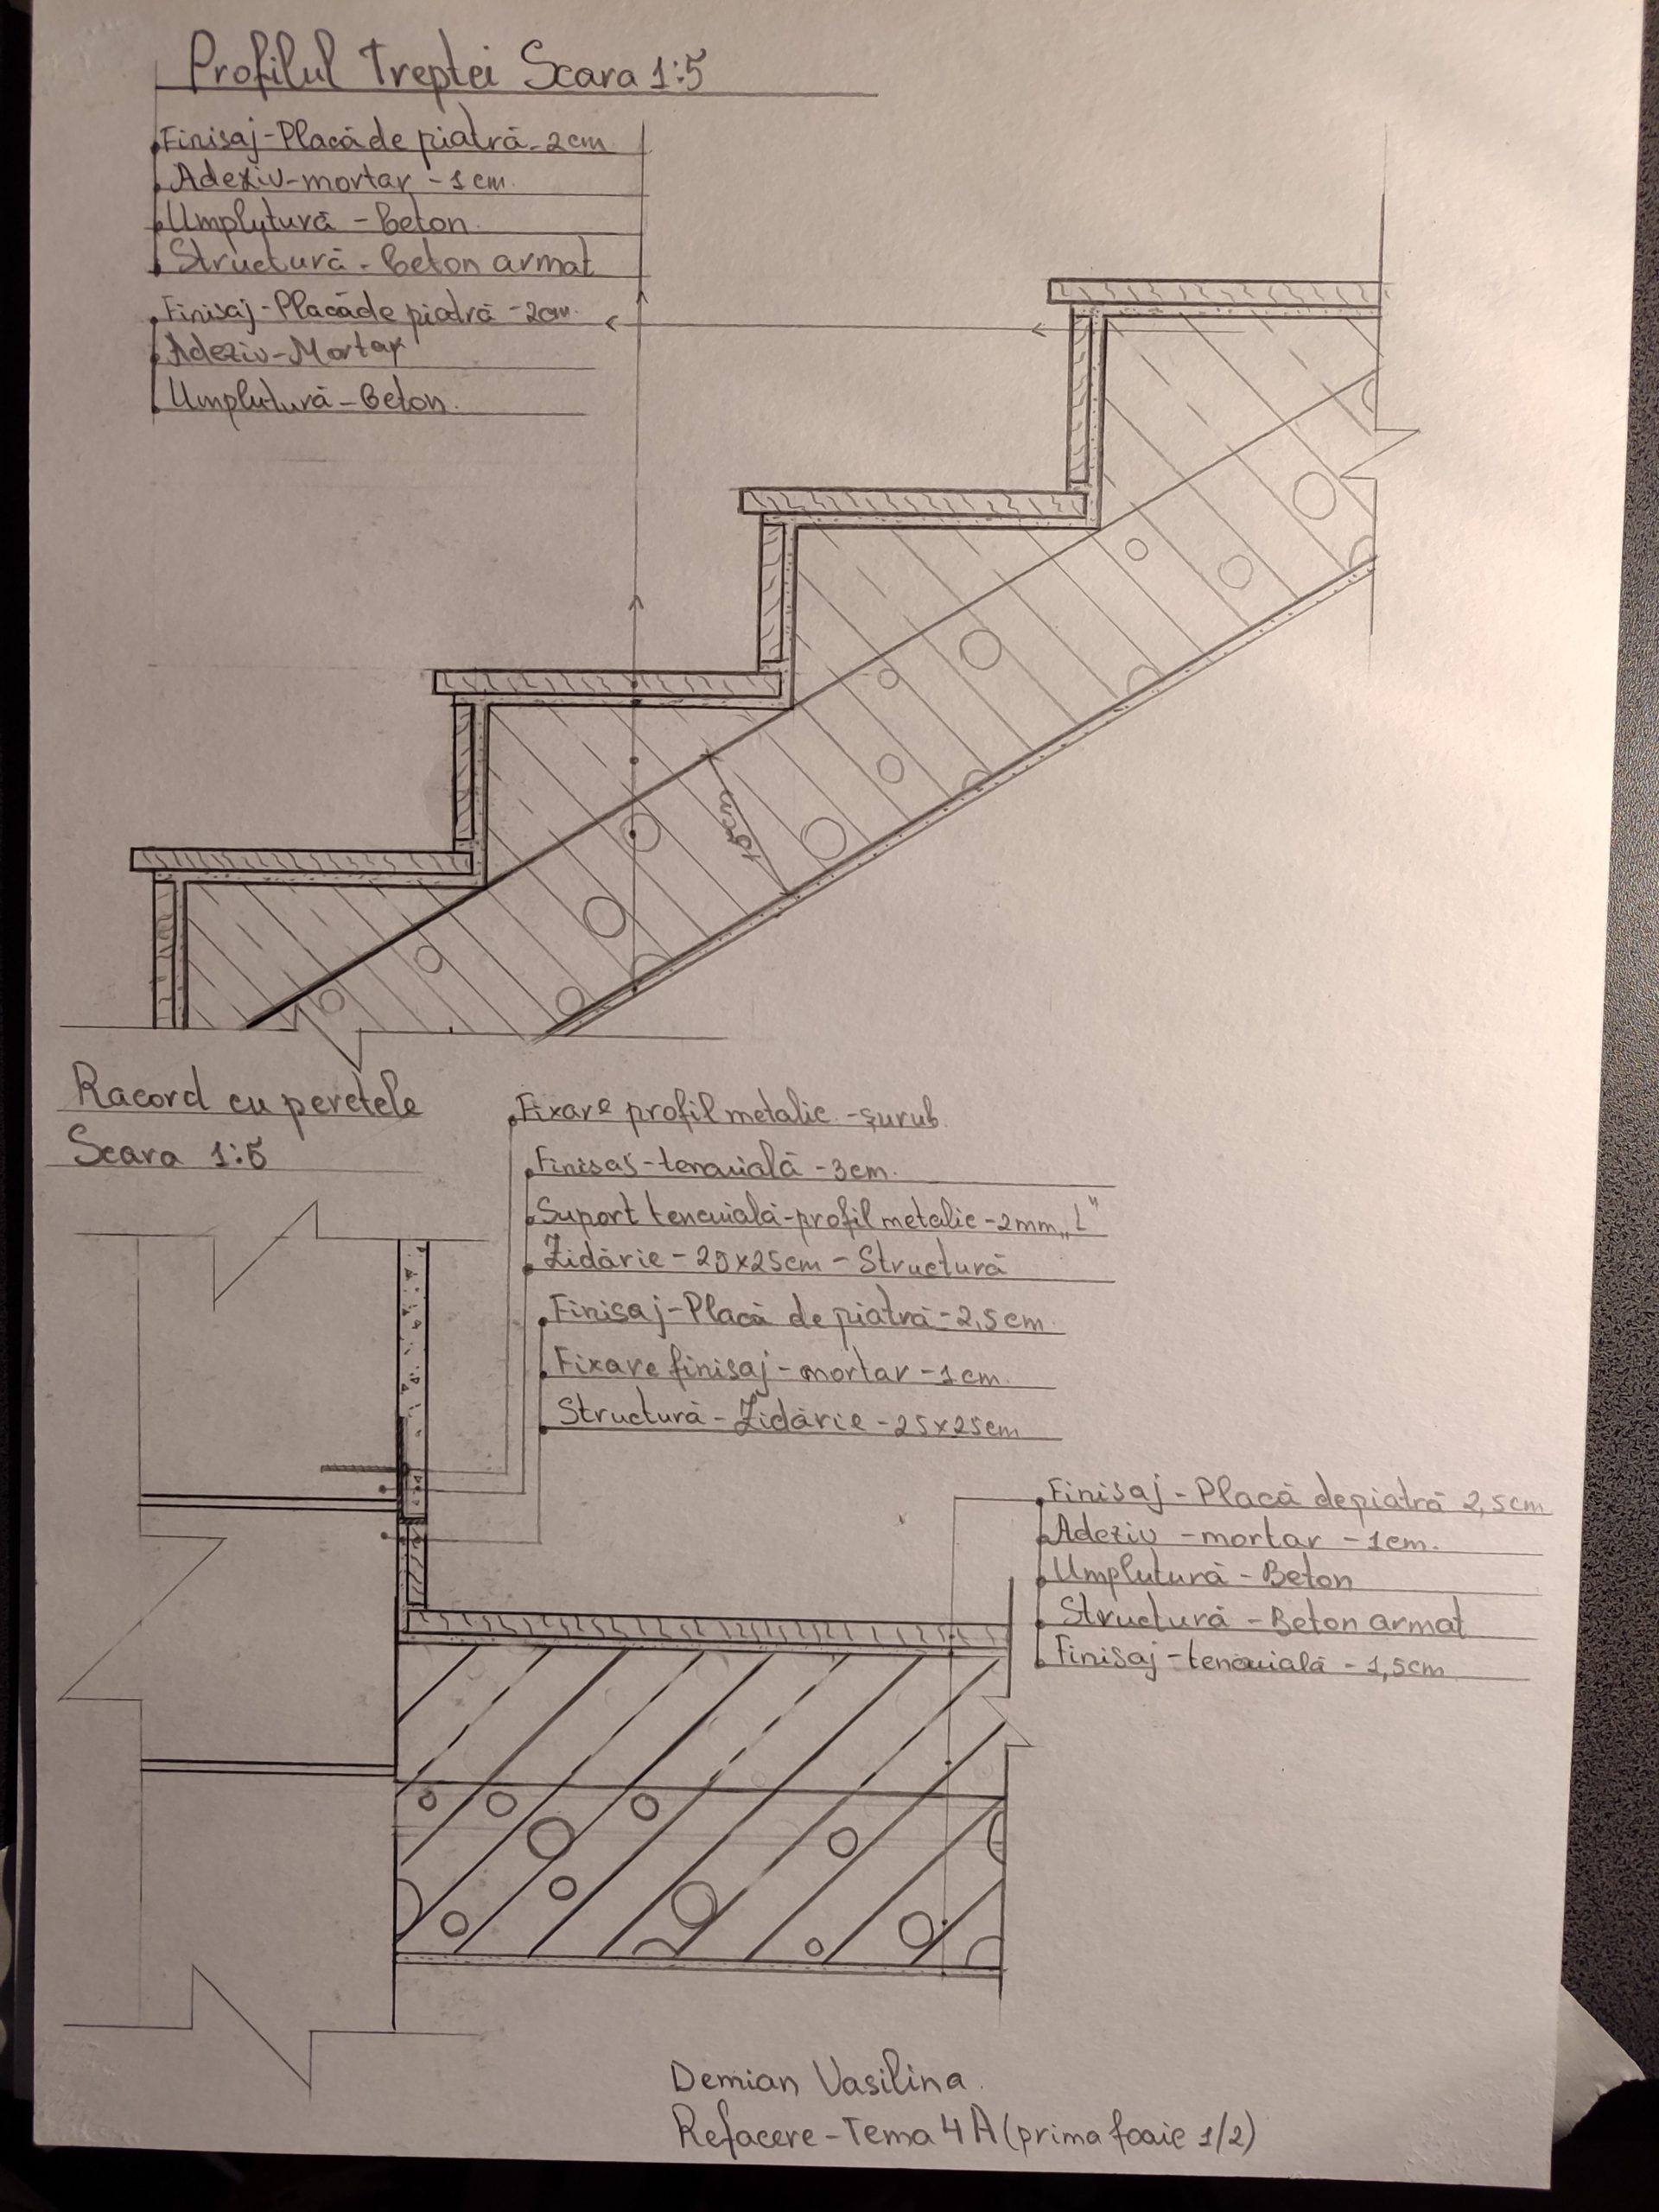 Profilul Treptei Scara 1:5
Finisaj-Placă de piatră-2cm
Adeziv-mortar-1cm.
Umplutură-beton.
Structură-beton armat
Finisaj-Placă de piatră-2cm.
Adeziv-Mortar
Umplutură-beton.
Racord cu peretele
Scara 1:5
Fixare profil metalic-șurub.
tencuială-3cm.
Suport tencuială-profil metalic-2mm„L"
Zidărie-25x25cm-Structură
Finisaj-Placă de piatră-2,5cm.
Fixare finisaj-mortar-1cm.
Structură-Zidărie-25x25cm
Finisaj-Placă de piatră 2,5cm
Adeziv-mortar-1cm.
Umplutură-Beton
Structură-Beton armat
Finisaj-tencuială-1,5cm
Demian Vasilina.
Refacere-Tema 4A(prima foaie 1/2)